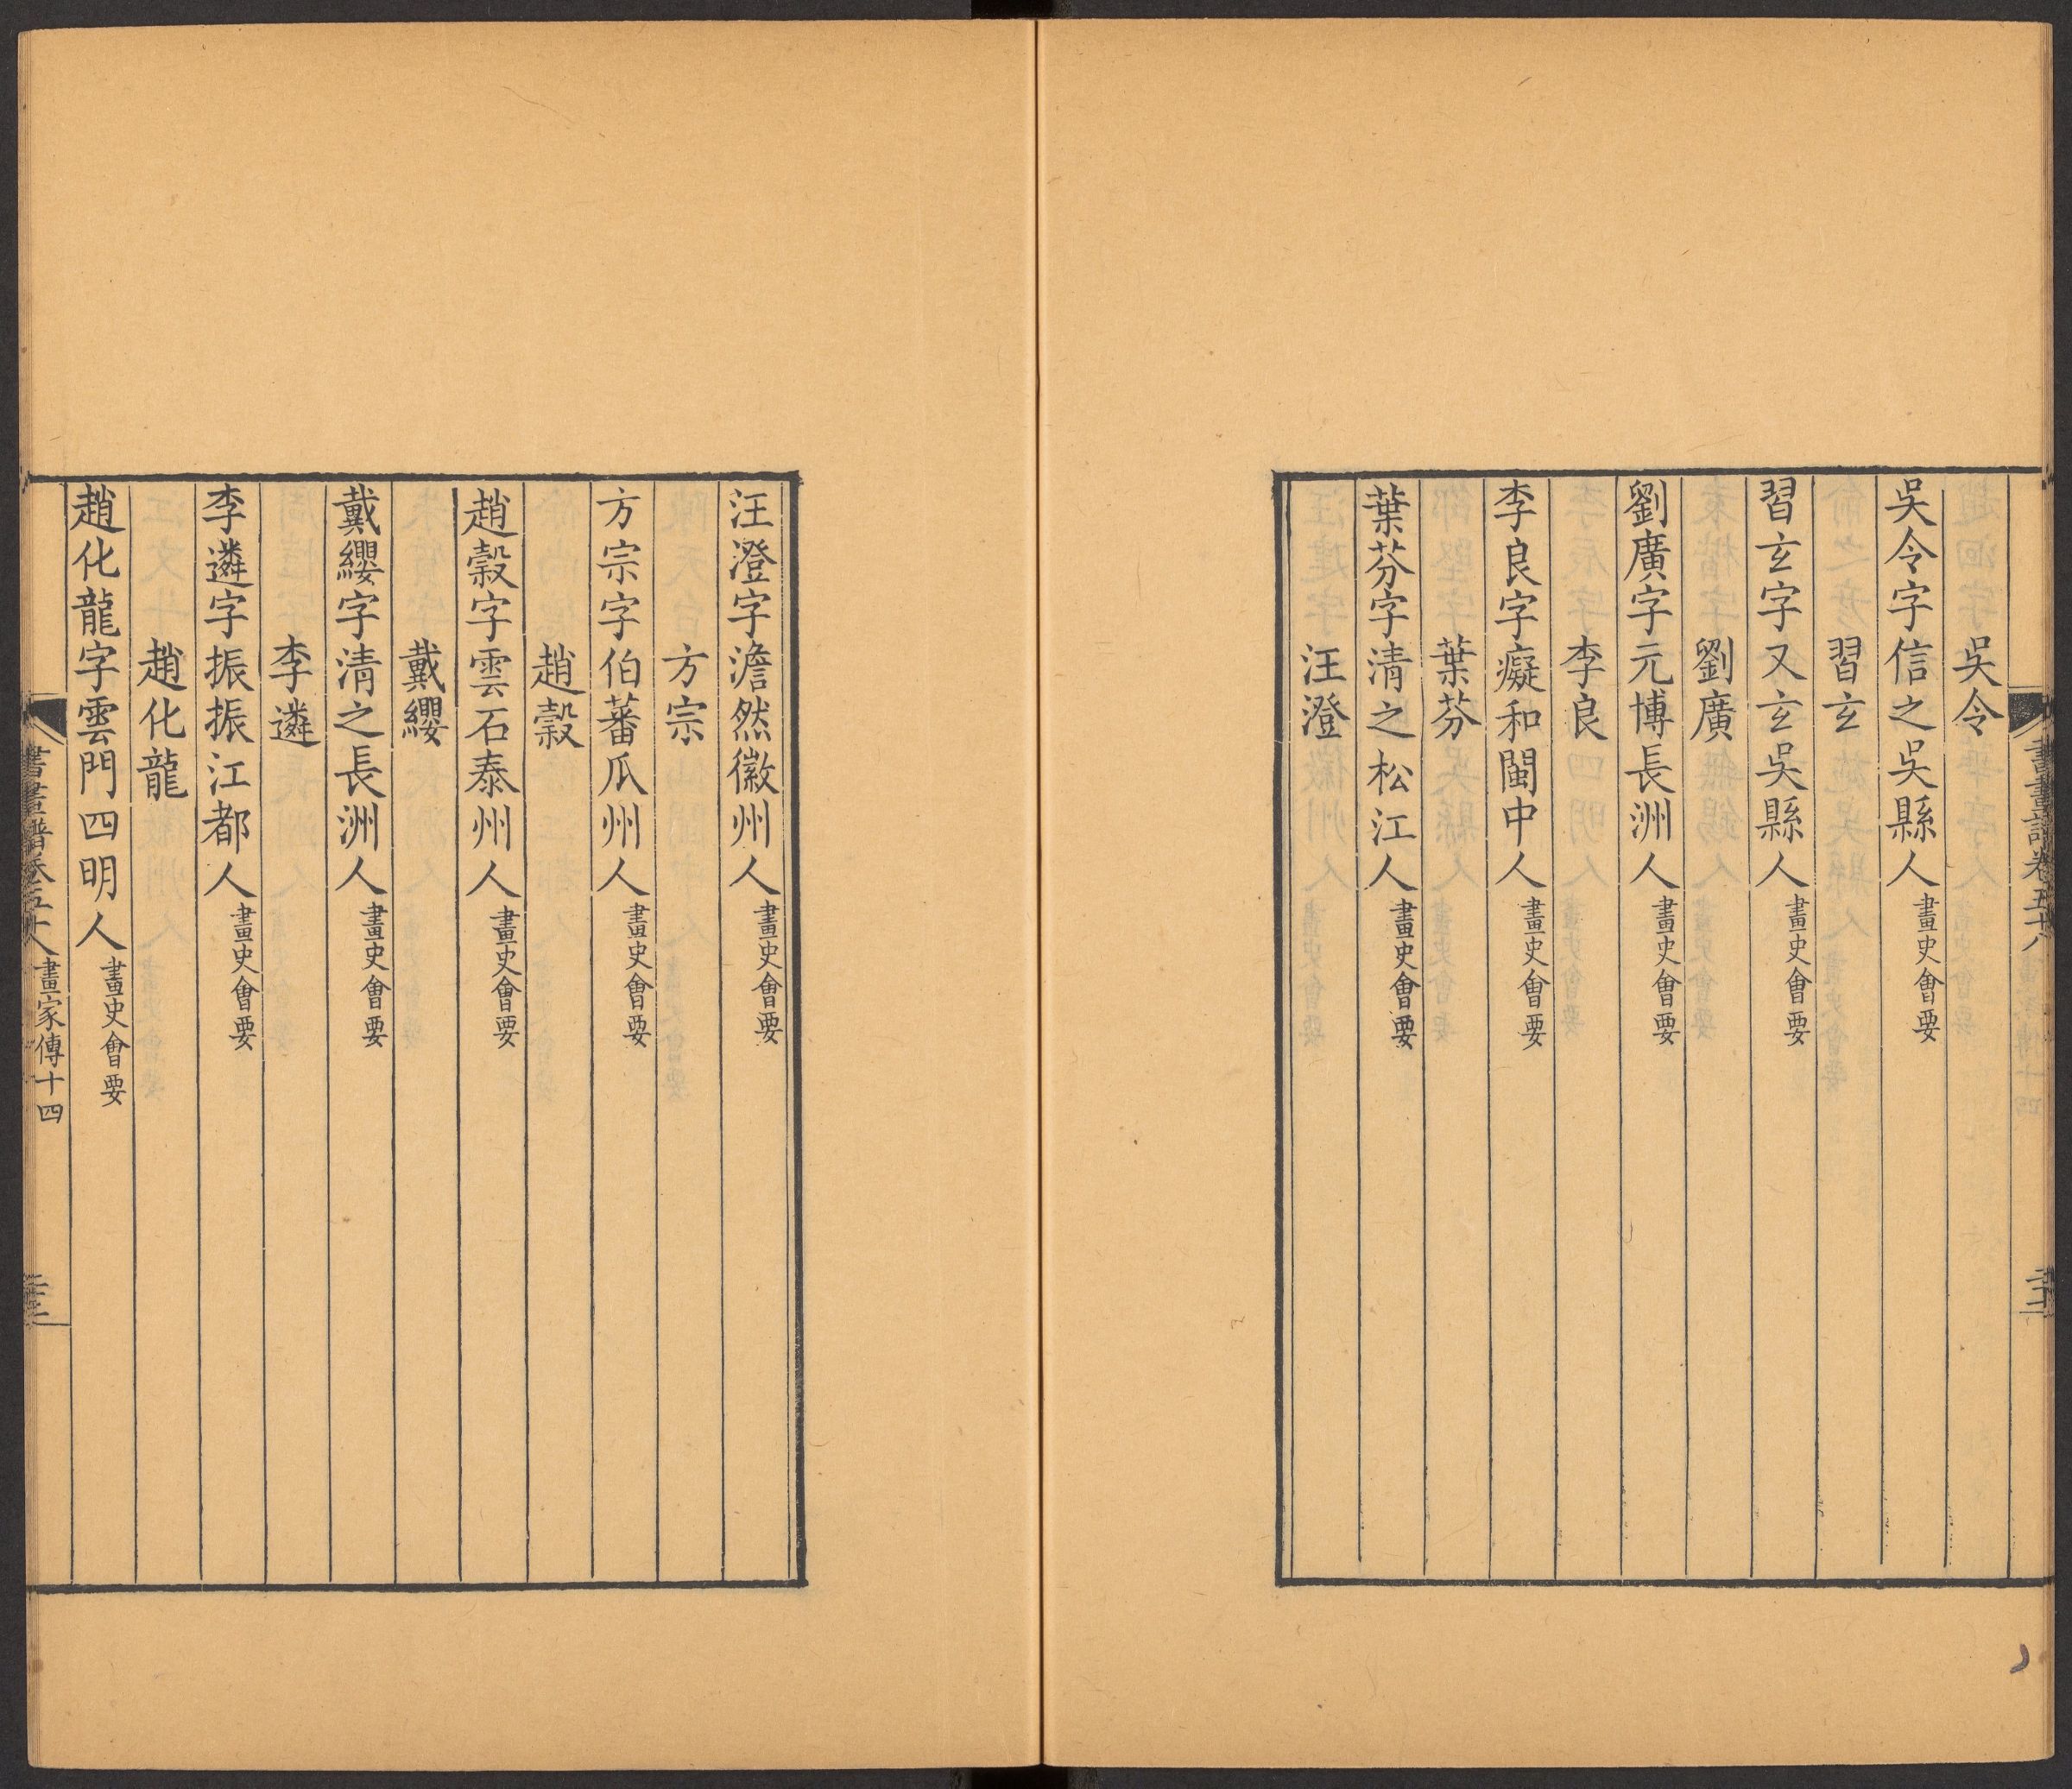 吳令
吳令字信之吳縣人畫史會要
習玄
習玄字又玄吳縣人畫史會要
劉廣
劉廣字元博長洲人畫史會要
李良
李良字癡和閩中人畫史會要
葉芬
葉芬字清之松江人畫史會要
汪澄
汪澄字澹然徽州人畫史會要
方宗
方宗字伯蕃瓜州人畫史會要
趙㲄
趙㲄字雲石泰州人畫史會要
戴纓
戴纓字清之長洲人畫史會要
李遴
李遴字振振江都人畫史會要
趙化龍
趙化龍字雲門四明人畫史會要
書畫譜卷五十八畫家傳十四